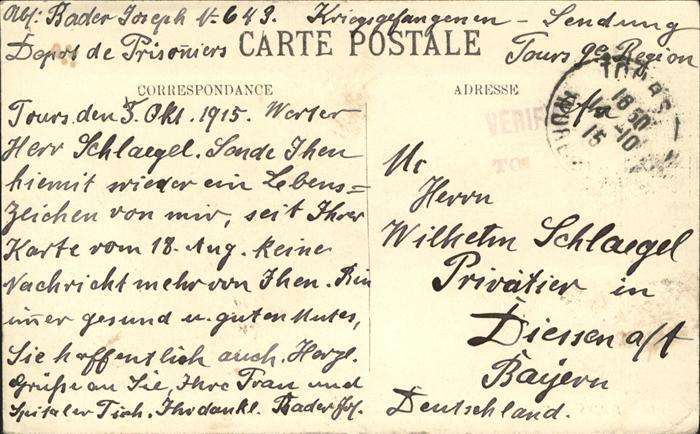 Abs: Bader Joseph No 643. Kriegsgefangenen - Sendung
Depot de Prisonniers
CARTE POSTALE
Tours 9e Region
CORRESPONDANCE
Tours den 3. Okt. 1915. Werter
Herr Schlaegel. Sende Ihen
hiemit wieder ein Lebens=
zeichen von mir, seit Ihrer
Karte vom 18. Aug. keine
Nachricht mehr von Ihen. Bin
im̅er gesund u. guten Mutes,
Sie hoffentlich auch. Herzl.
Grüße an Sie, Ihre Frau und
Spitaler Tich. Ihr dankl. Bader Jos.
ADRESSE
VÉRIFI
TO
TOURS
18 50
-10
15
An
Herrn
Wilhelm Schlaegel
Privatier in
Diessen a/A
Bayern
Deutschland.